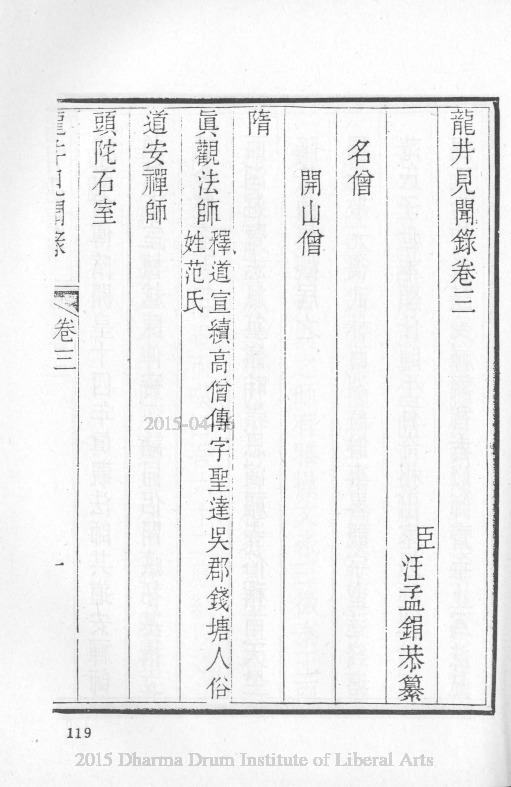 龍井見聞錄卷三
臣汪孟鋗恭纂
名僧
開山僧
隋
眞觀法師 釋道宣續高僧傳字聖達吳郡錢塘人俗
姓范氏
道安禪師
頭陀石室
龍井見聞錄 卷三 一
119
2015-04-
2015 Dharma Drum Institute of Liberal Arts